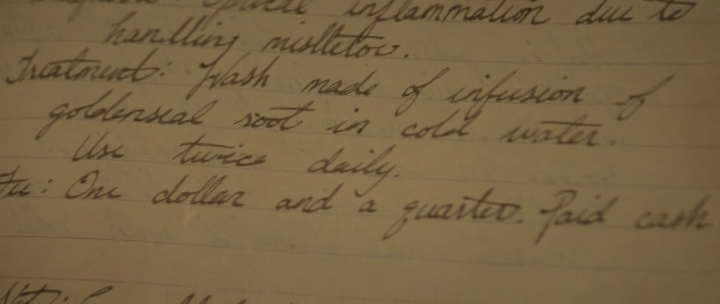 inflammation due to
handling mistletoe.
Treatment: Wash made of infusion of
goldenseal root in cold water.
Use twice daily.
Fee: One dollar and a quarter. Paid cash